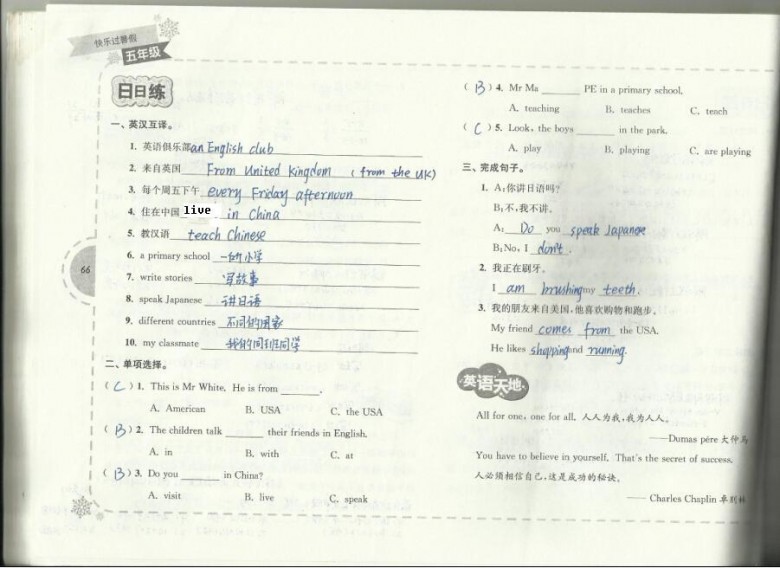 快乐过暑假
五年级
日日练
一、英汉互译。
1. 英语俱乐部 an English club
2. 来自英国 From United kingdom (from the UK)
3. 每个周五下午 every Friday afternoon
4. 住在中国 live in China
5. 教汉语 teach Chinese
6. a primary school 一所小学
7. write stories 写故事
8. speak Japanese 讲日语
9. different countries 不同的国家
10. my classmate 我的同班同学
二、单项选择。
( C ) 1. This is Mr White. He is from ______.
A. American B. USA C. the USA
( B ) 2. The children talk ______ their friends in English.
A. in B. with C. at
( B ) 3. Do you ______ in China?
A. visit B. live C. speak
66
( B ) 4. Mr Ma ______ PE in a primary school.
A. teaching B. teaches C. teach
( C ) 5. Look, the boys ______ in the park.
A. play B. playing C. are playing
三、完成句子。
1. A:你讲日语吗?
B:不,我不讲。
A: Do you speak Japanese
B: No, I don't.
2. 我正在刷牙。
I am brushing my teeth.
3. 我的朋友来自美国,他喜欢购物和跑步。
My friend comes from the USA.
He likes shopping and running.
英语天地
All for one, one for all. 人人为我,我为人人。
——Dumas père 大仲马
You have to believe in yourself. That's the secret of success.
人必须相信自己,这是成功的秘诀。
—— Charles Chaplin 卓别林